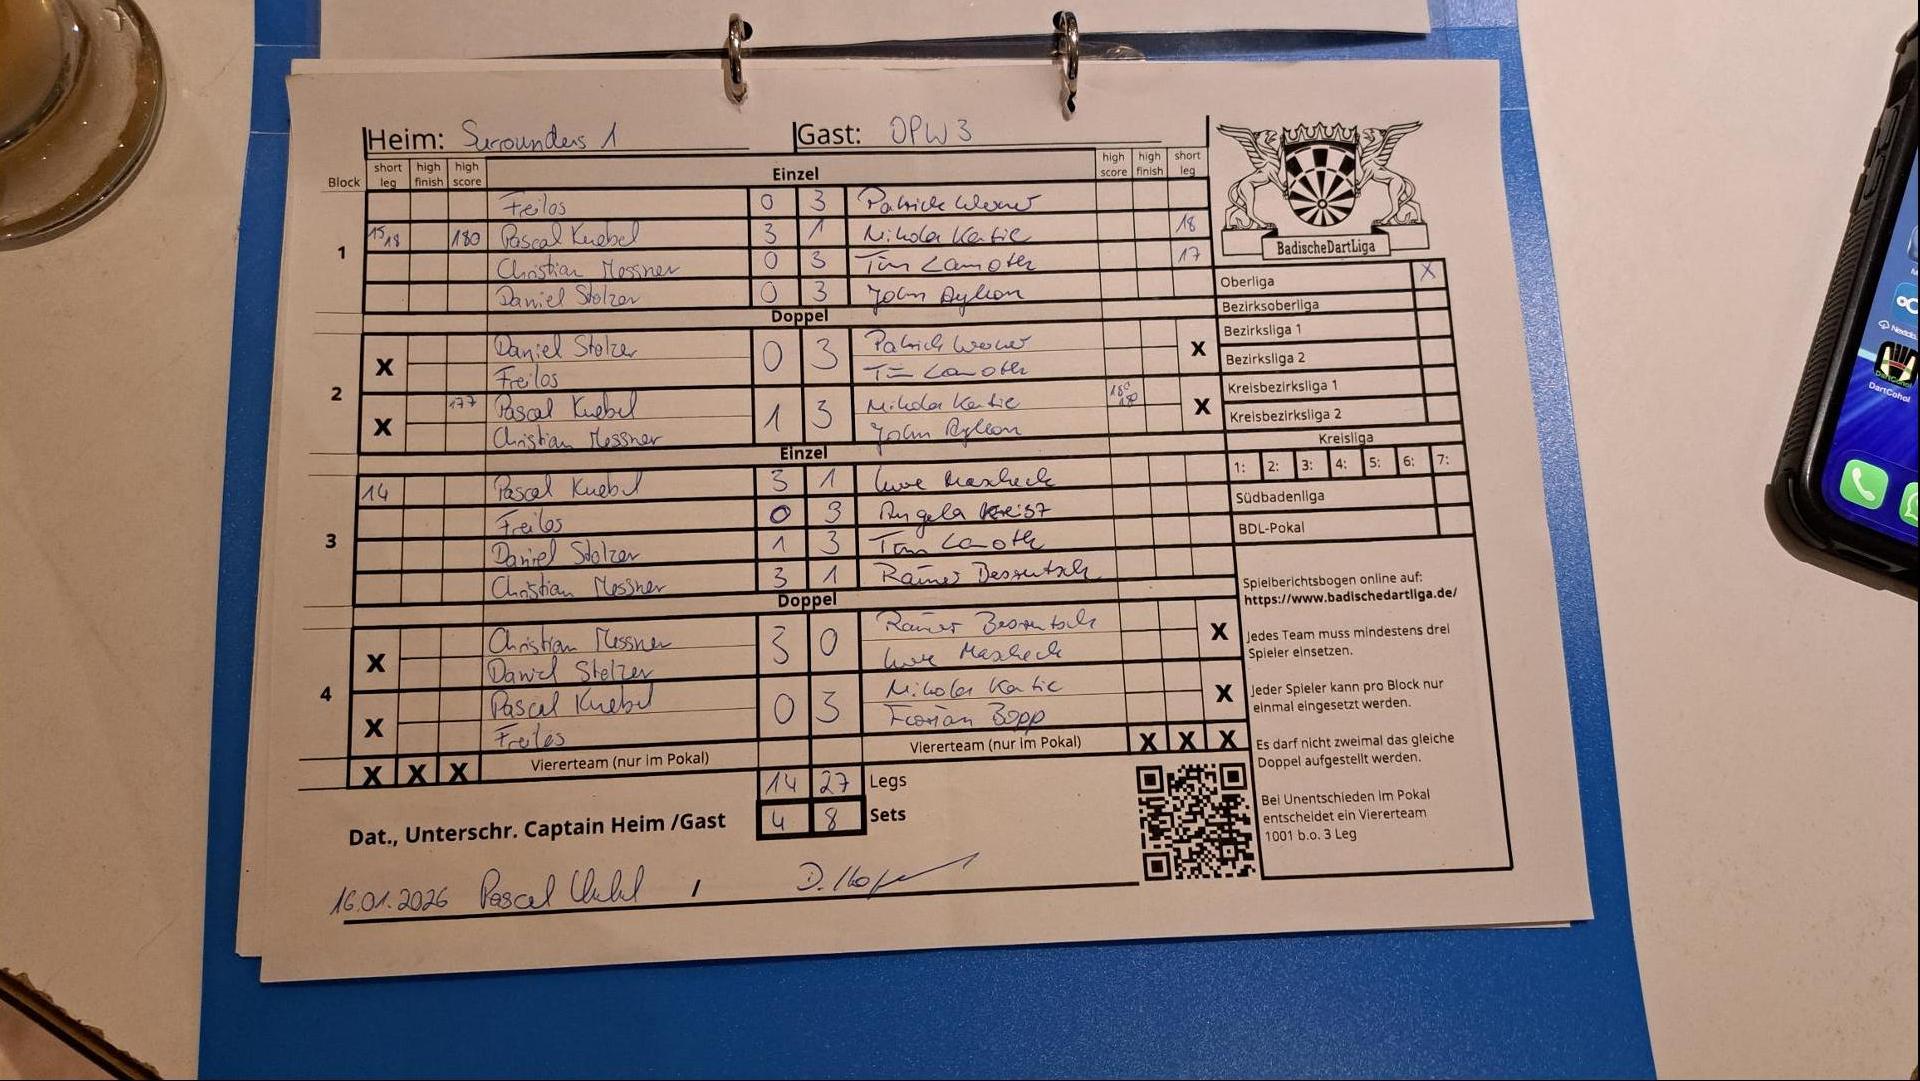 Heim: Surounders 1 Gast: OPW 3
Block short leg high finish high score Einzel high score high finish short leg
1
Freilos 0 3 Patrick Werner
15 18 180 Pascal Knebel 3 1 Nikola Katic 18
Christian Messner 0 3 Tim Lamoth 17
Daniel Stolzer 0 3 John
Doppel
2
X Daniel Stolzer 0 3 Patrick Werner X
Freilos Tim Lamoth
X 177 Pascal Knebel 1 3 Nikola Katic 180 180 X
Christian Messner John
Einzel
3
14 Pascal Knebel 3 1 Uwe Mascheck
Freilos 0 3 Angela
Daniel Stolzer 1 3 Tim Lamoth
Christian Messner 3 1 Rainer
Doppel
4
X Christian Messner 3 0 Rainer X
Daniel Stolzer Uwe Mascheck
X Pascal Knebel 0 3 Nikola Katic X
Freilos Florian Bopp
X X X Viererteam (nur im Pokal) Viererteam (nur im Pokal) X X X
14 27 Legs
4 8 Sets
Dat., Unterschr. Captain Heim /Gast
16.01.2026 Pascal /
BadischeDartLiga
Oberliga X
Bezirksoberliga
Bezirksliga 1
Bezirksliga 2
Kreisbezirksliga 1
Kreisbezirksliga 2
Kreisliga
1: 2: 3: 4: 5: 6: 7:
Südbadenliga
BDL-Pokal
Spielberichtsbogen online auf:
https://www.badischedartliga.de/
Jedes Team muss mindestens drei
Spieler einsetzen.
Jeder Spieler kann pro Block nur
einmal eingesetzt werden.
Es darf nicht zweimal das gleiche
Doppel aufgestellt werden.
Bei Unentschieden im Pokal
entscheidet ein Viererteam
1001 b.o. 3 Leg
DartCohol